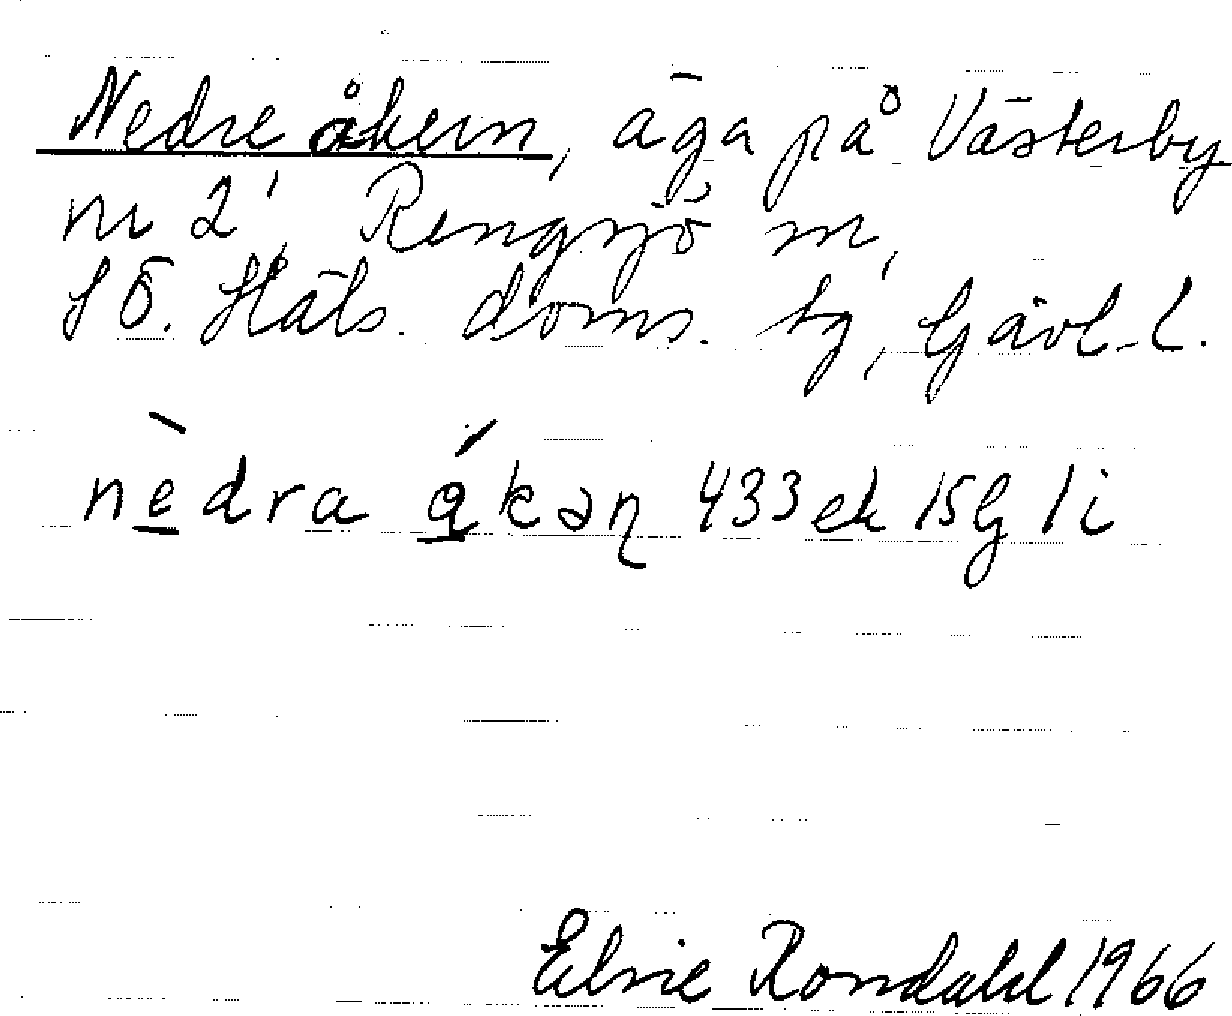 Nedre åkern, äga på Västerby
nr 2, Rengsjö sn,
SÖ. Häls. doms. tg, Gävl. l.
nèdra åkən 433ek 15G 1i
Elsie Rondahl 1966